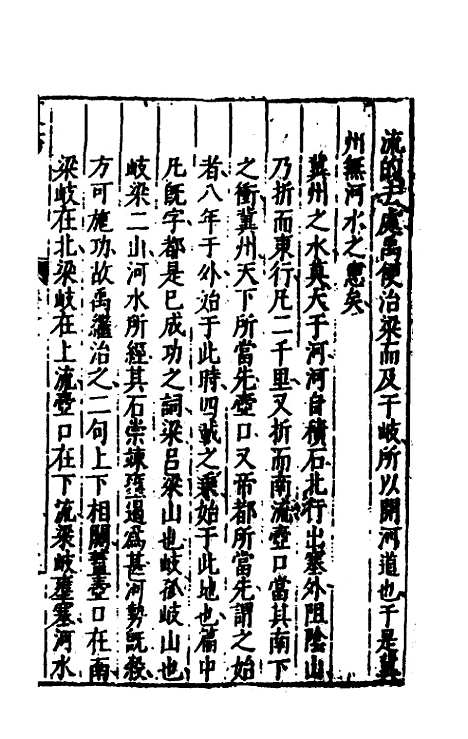 流的去處禹便治梁而及于岐所以開河道也于是冀
州無河水之患矣
冀州之水莫大于河河自積石北行出塞外阻陰山
乃折而東行凡二千里又折而南流壺口當其南下
之衝冀州天下所當先壺口又帝都所當先謂之始
者八年于外始于此時四載之乘始于此地也篇中
凡既字都是已成功之詞梁呂梁山也岐狐岐山也
岐梁二山河水所經其石崇竦壅遏為甚河勢既殺
方可施功故禹繼治之二句上下相關蓋壺口在南
梁岐在北梁岐在上流壺口在下流梁岐壅塞河水